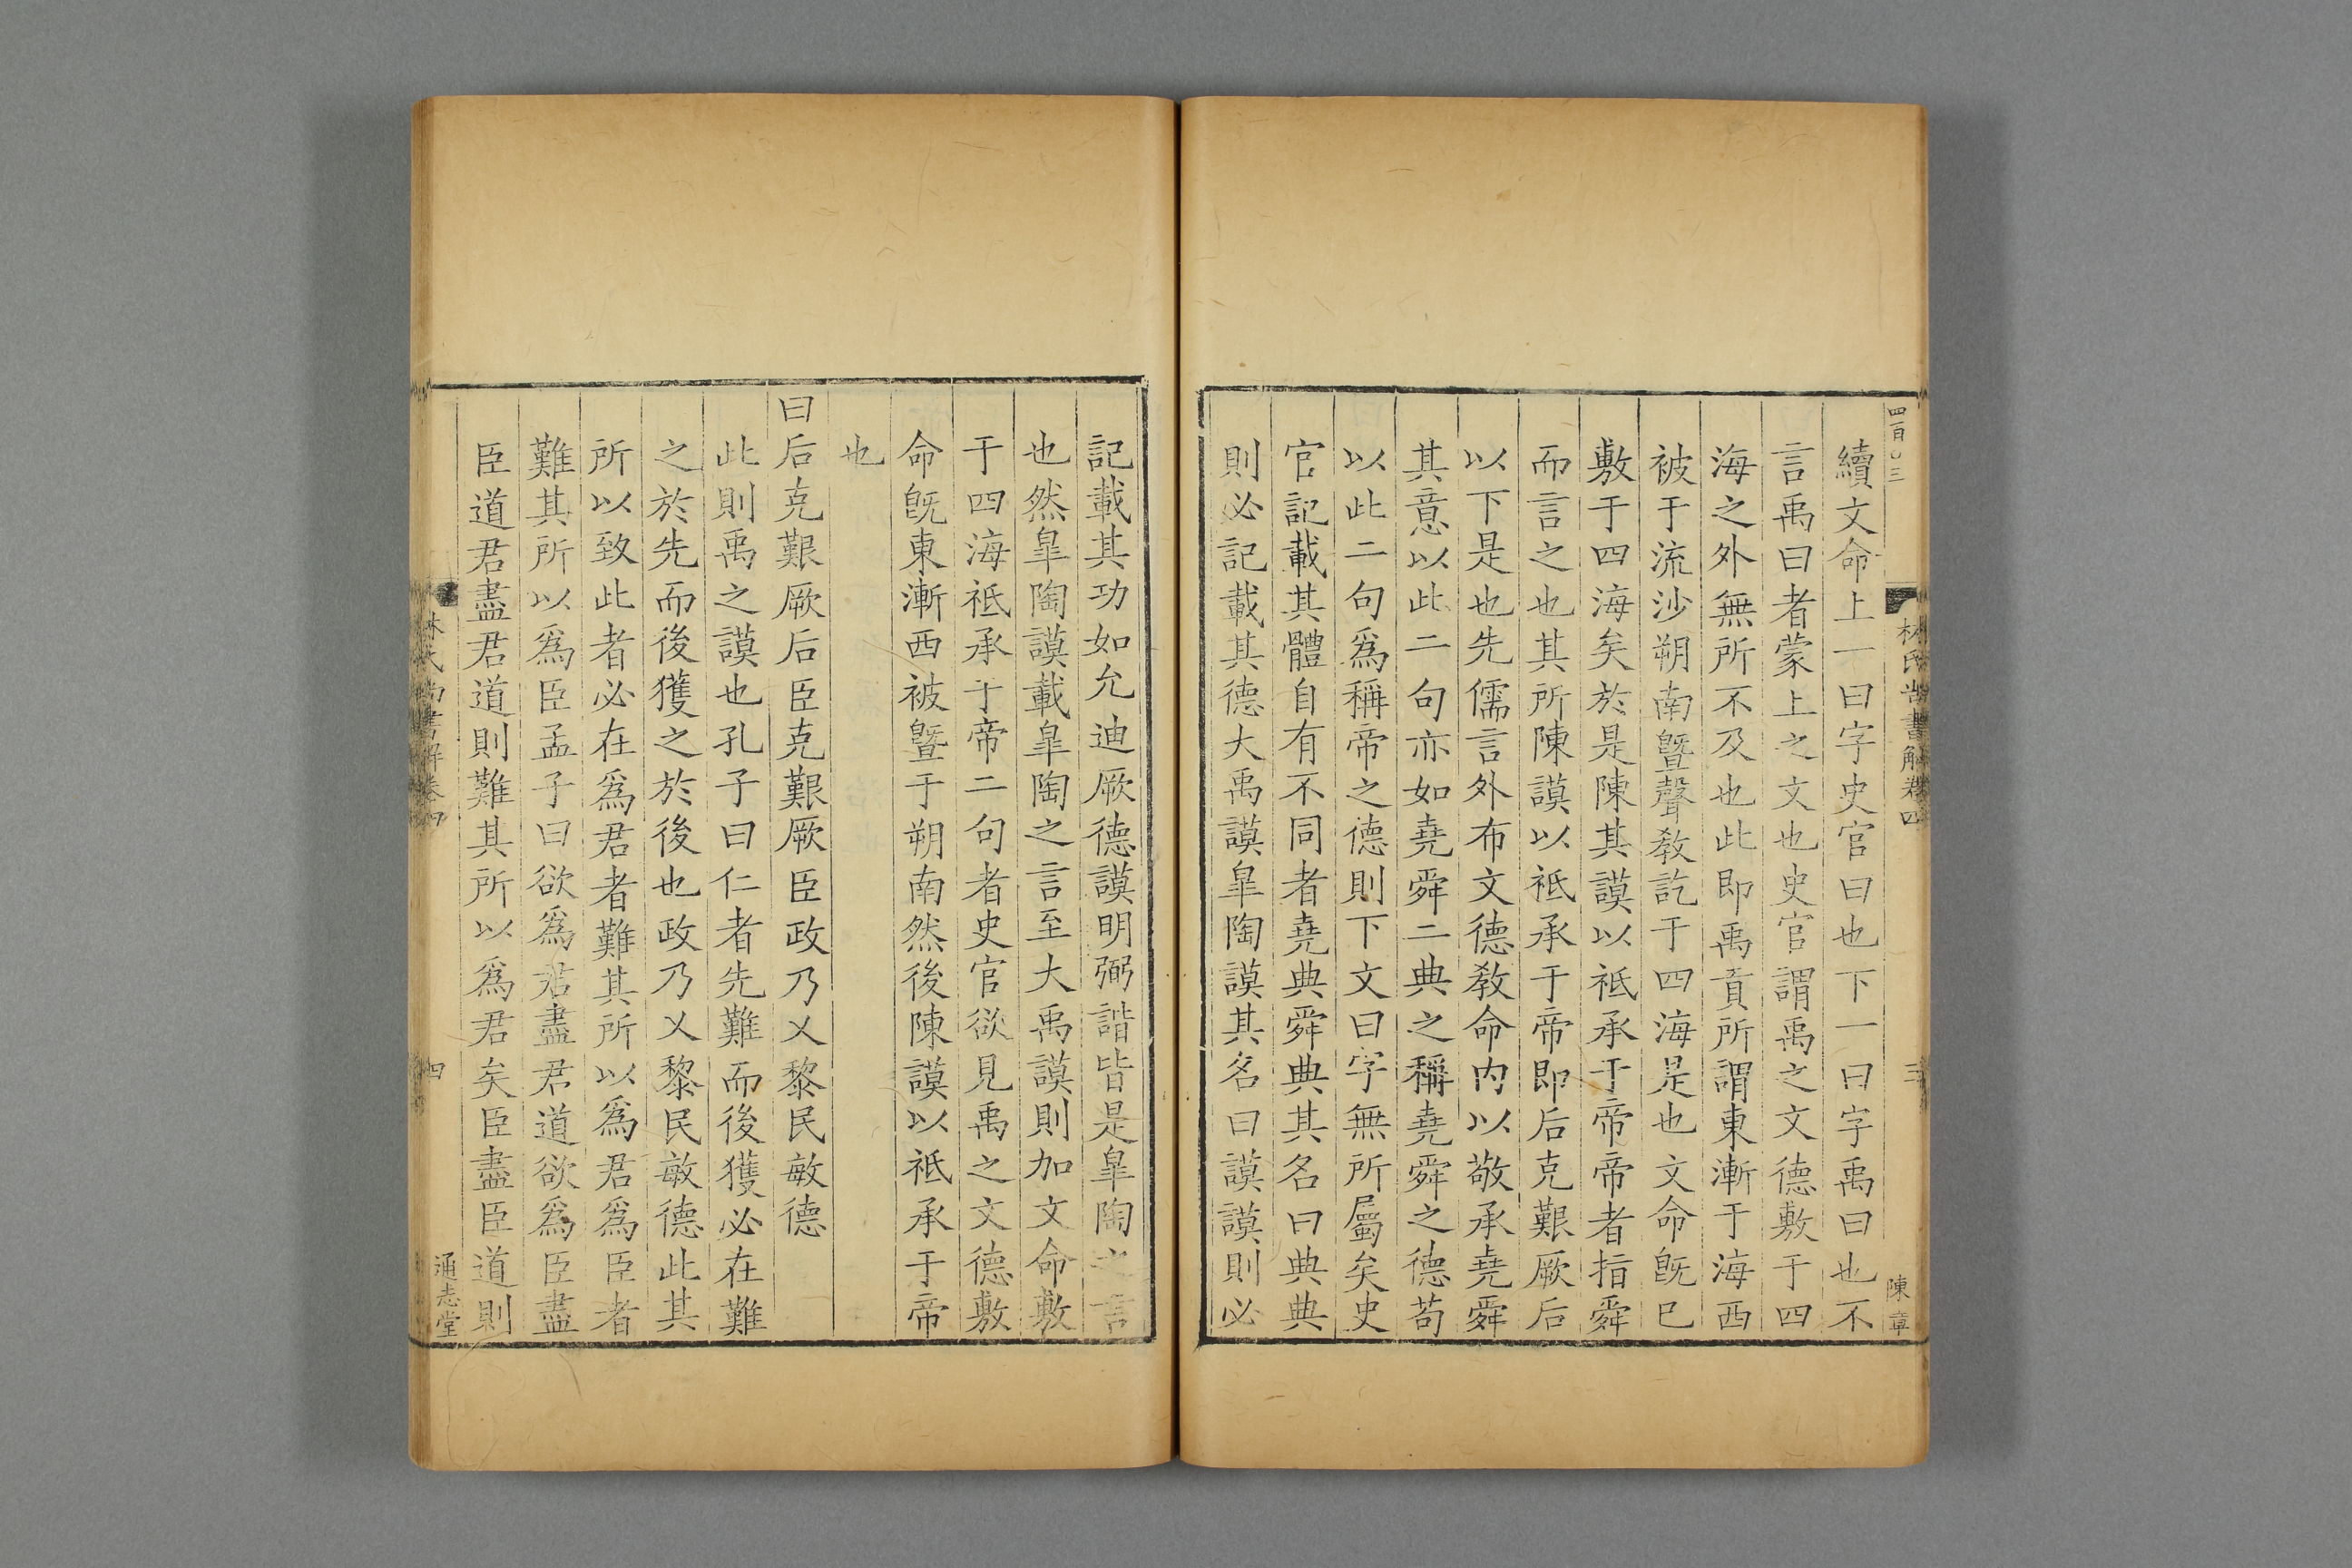 四百〇三
林氏尚書解卷四
三
陳章
續文命上一曰字史官曰也下一曰字禹曰也不
言禹曰者蒙上之文也史官謂禹之文德敷于四
海之外無所不及也此即禹貢所謂東漸于海西
被于流沙朔南曁聲敎訖于四海是也文命旣已
敷于四海矣於是陳其謨以祗承于帝帝者指舜
而言之也其所陳謨以祗承于帝即后克艱厥后
以下是也先儒言外布文德敎命內以敬承堯舜
其意以此二句亦如堯舜二典之稱堯舜之德苟
以此二句爲稱帝之德則下文曰字無所屬矣史
官記載其體自有不同者堯典舜典其名曰典典
則必記載其德大禹謨皐陶謨其名曰謨謨則必
記載其功如允迪厥德謨明弼諧皆是皐陶之言
也然皐陶謨載皐陶之言至大禹謨則加文命敷
于四海祗承于帝二句者史官欲見禹之文德敷
命旣東漸西被曁于朔南然後陳謨以祗承于帝
也
曰后克艱厥后臣克艱厥臣政乃乂黎民敏德
此則禹之謨也孔子曰仁者先難而後獲必在難
之於先而後獲之於後也政乃乂黎民敏德此其
所以致此者必在爲君者難其所以爲君爲臣者
難其所以爲臣孟子曰欲爲君盡君道欲爲臣盡
臣道君盡君道則難其所以爲君矣臣盡臣道則
林氏尚書解卷四
四
通志堂